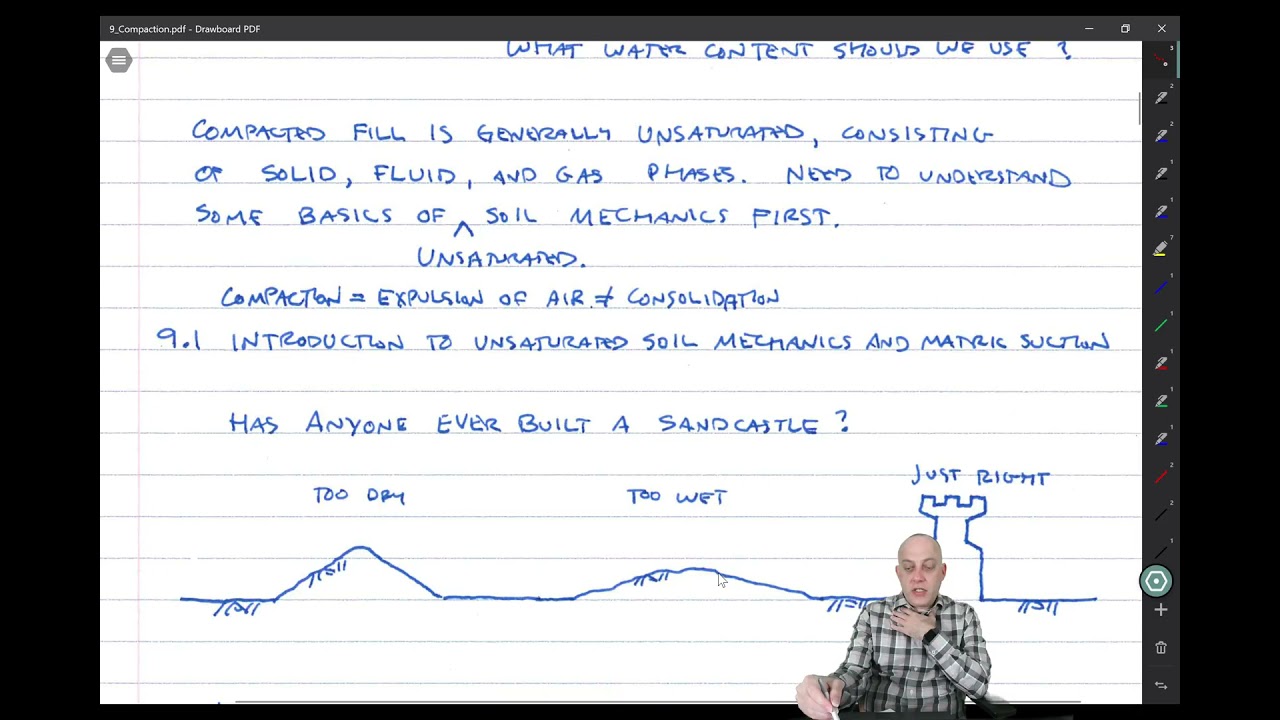 9_Compaction.pdf - Drawboard PDF
WHAT WATER CONTENT SHOULD WE USE ?
COMPACTED FILL IS GENERALLY UNSATURATED, CONSISTING
OF SOLID, FLUID, AND GAS PHASES. NEED TO UNDERSTAND
SOME BASICS OF ^ SOIL MECHANICS FIRST.
UNSATURATED.
COMPACTION = EXPULSION OF AIR ≠ CONSOLIDATION
9.1 INTRODUCTION TO UNSATURATED SOIL MECHANICS AND MATRIC SUCTION
HAS ANYONE EVER BUILT A SANDCASTLE ?
TOO DRY
TOO WET
JUST RIGHT